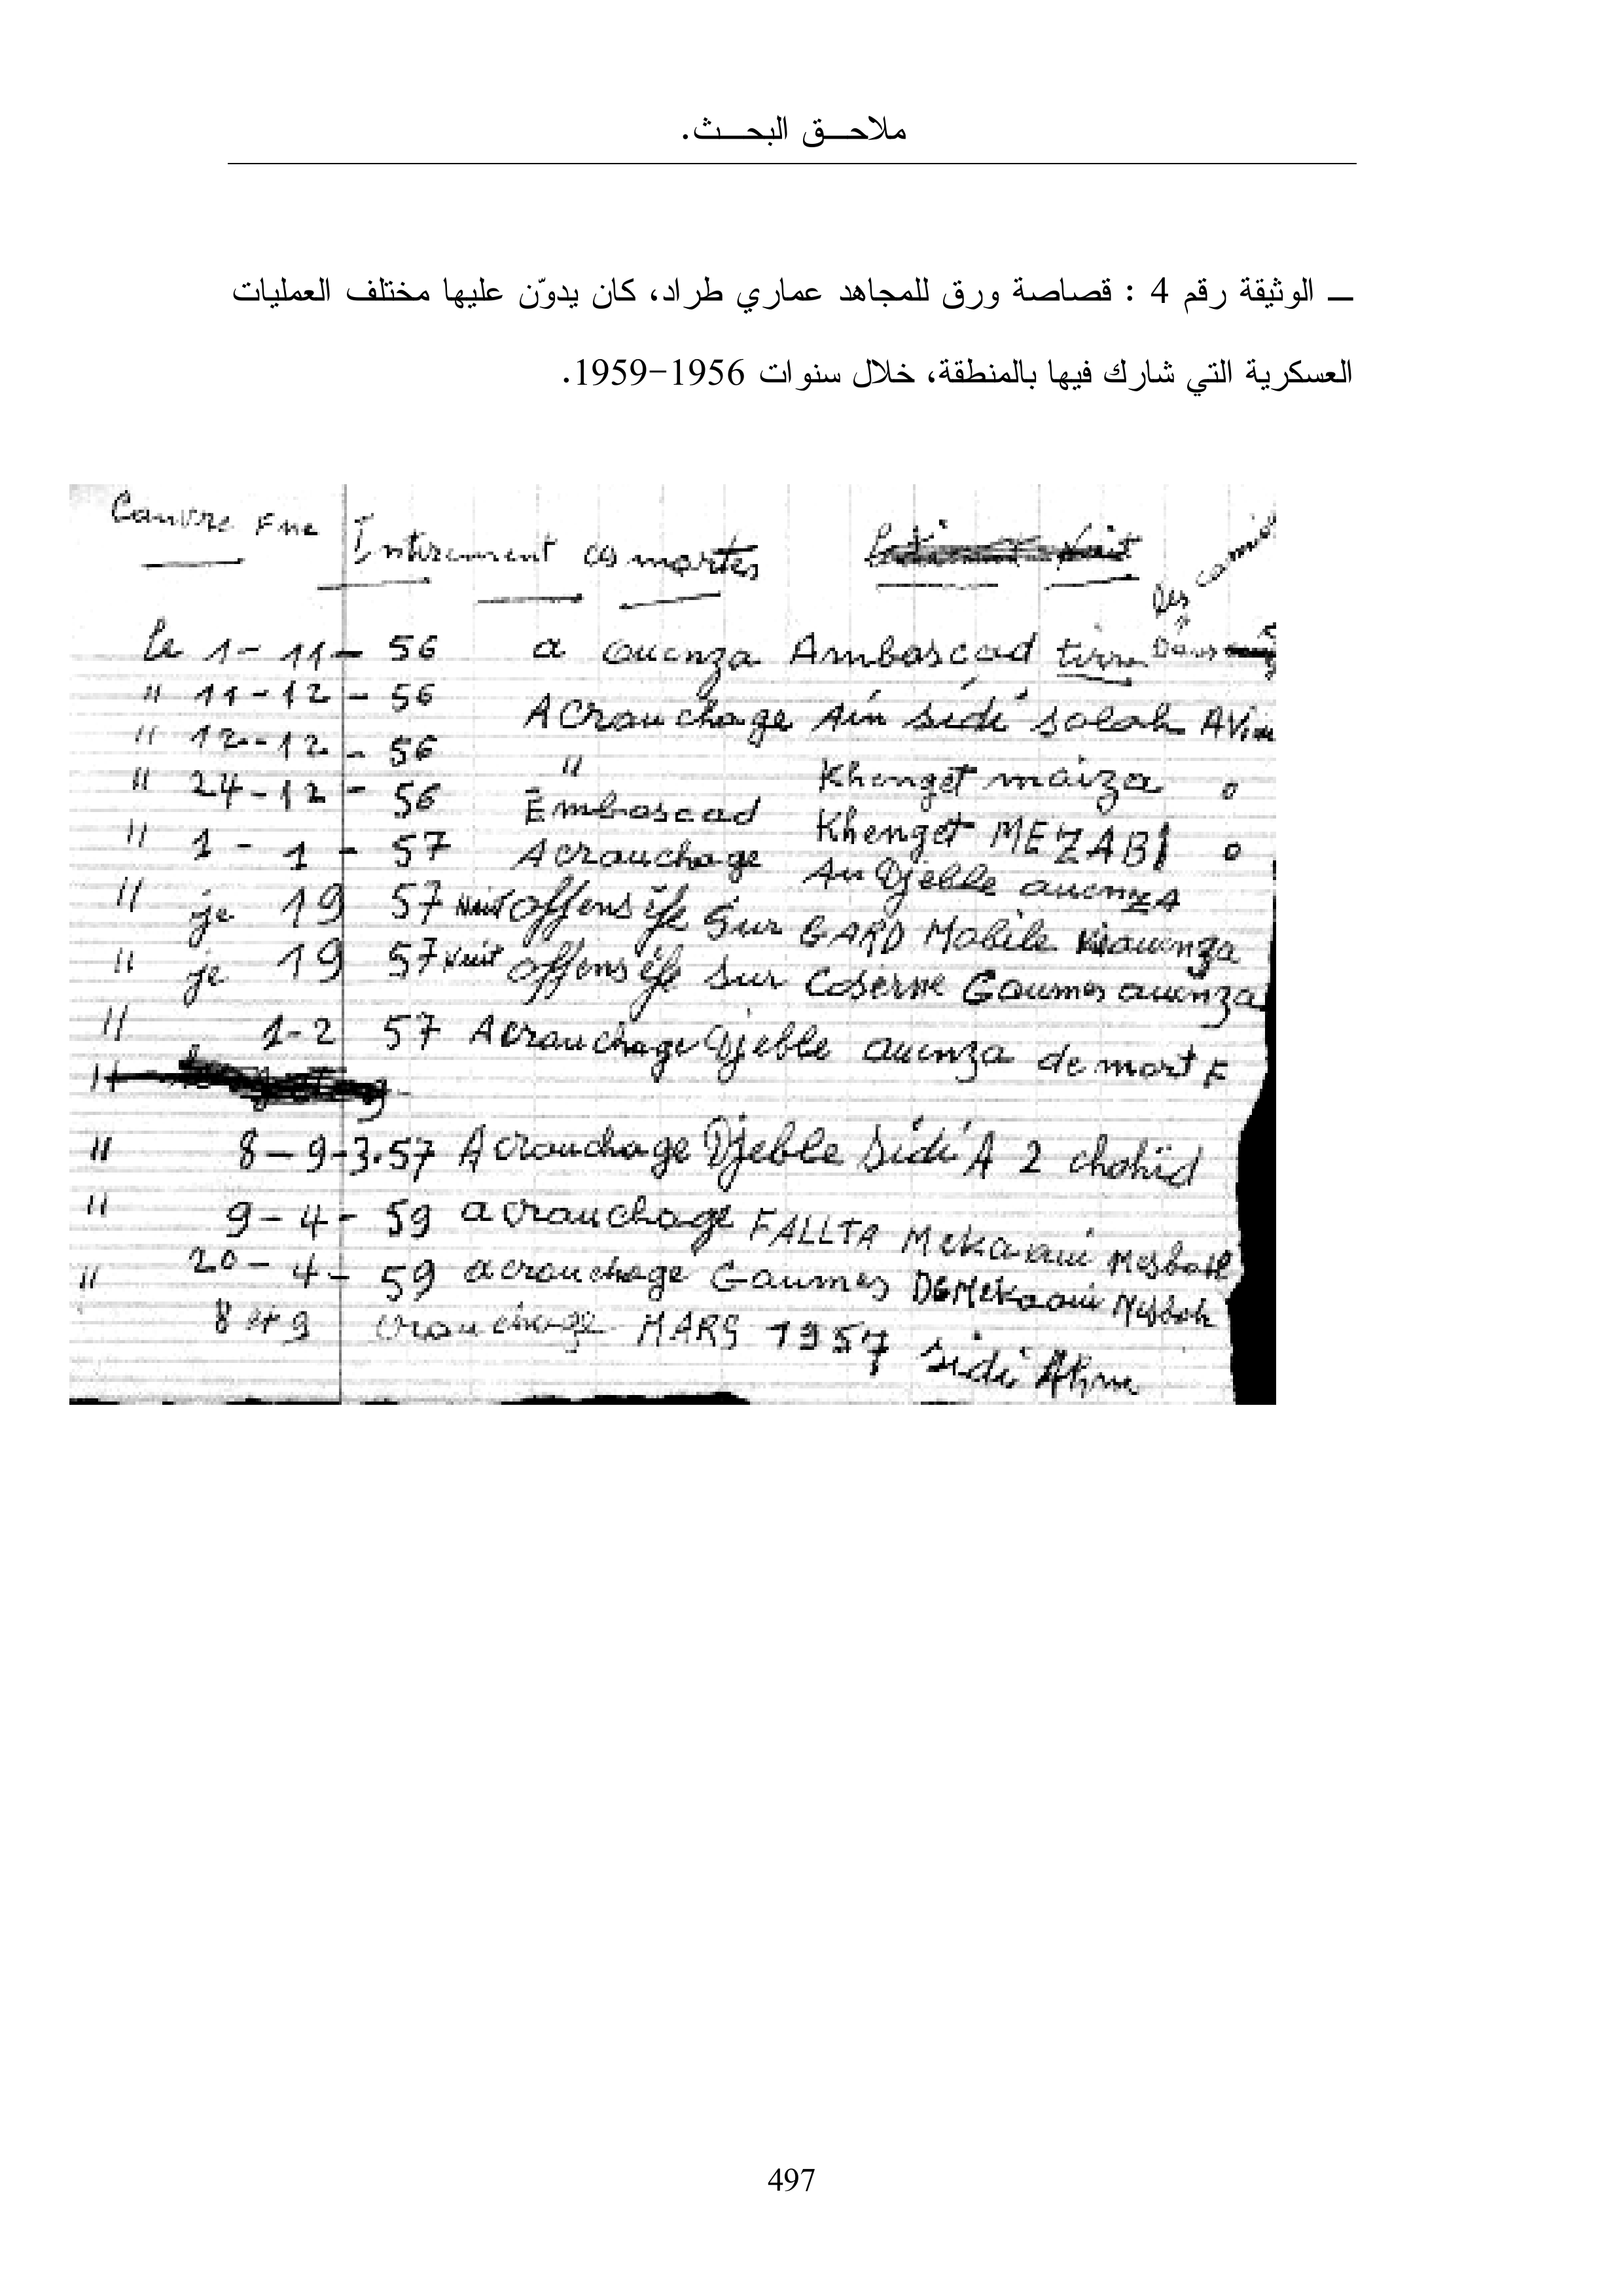 ملاحـــق البحـــث.
ــ الوثيقة رقم 4 : قصاصة ورق للمجاهد عماري طراد، كان يدوّن عليها مختلف العمليات
العسكرية التي شارك فيها بالمنطقة، خلال سنوات 1956-1959.
Couvre Fne Intirement des martes
Des camio
le 1 - 11 - 56 a ouenza Ambascad tirre Dans
" 11 - 12 - 56 Acrauchage Ain sidi salah Avion
" 12 - 12 - 56 " Khenget maiza o
" 24 - 12 - 56 Embascad Khenget MEZABI o
" 1 - 1 - 57 Acrauchage Au Djeble auenza
" je 19 57 Nuit offensife Sur GARD Mobile auenza
" je 19 57 Nuit offensife sur Caserne Gaumes auenza
" 1-2 57 Acrauchage Djeble auenza de mort F
"
" 8 - 9 - 3.57 Acrauchage Djeble Sidi A 2 chohid
" 9 - 4 - 59 acrauchage FALLTA Mekaoui Mesbah
" 20 - 4 - 59 acrauchage Gaumes DG Mekaoui Mesbah
8 et 9 crauchage MARS 1957 sidi Ahme
497